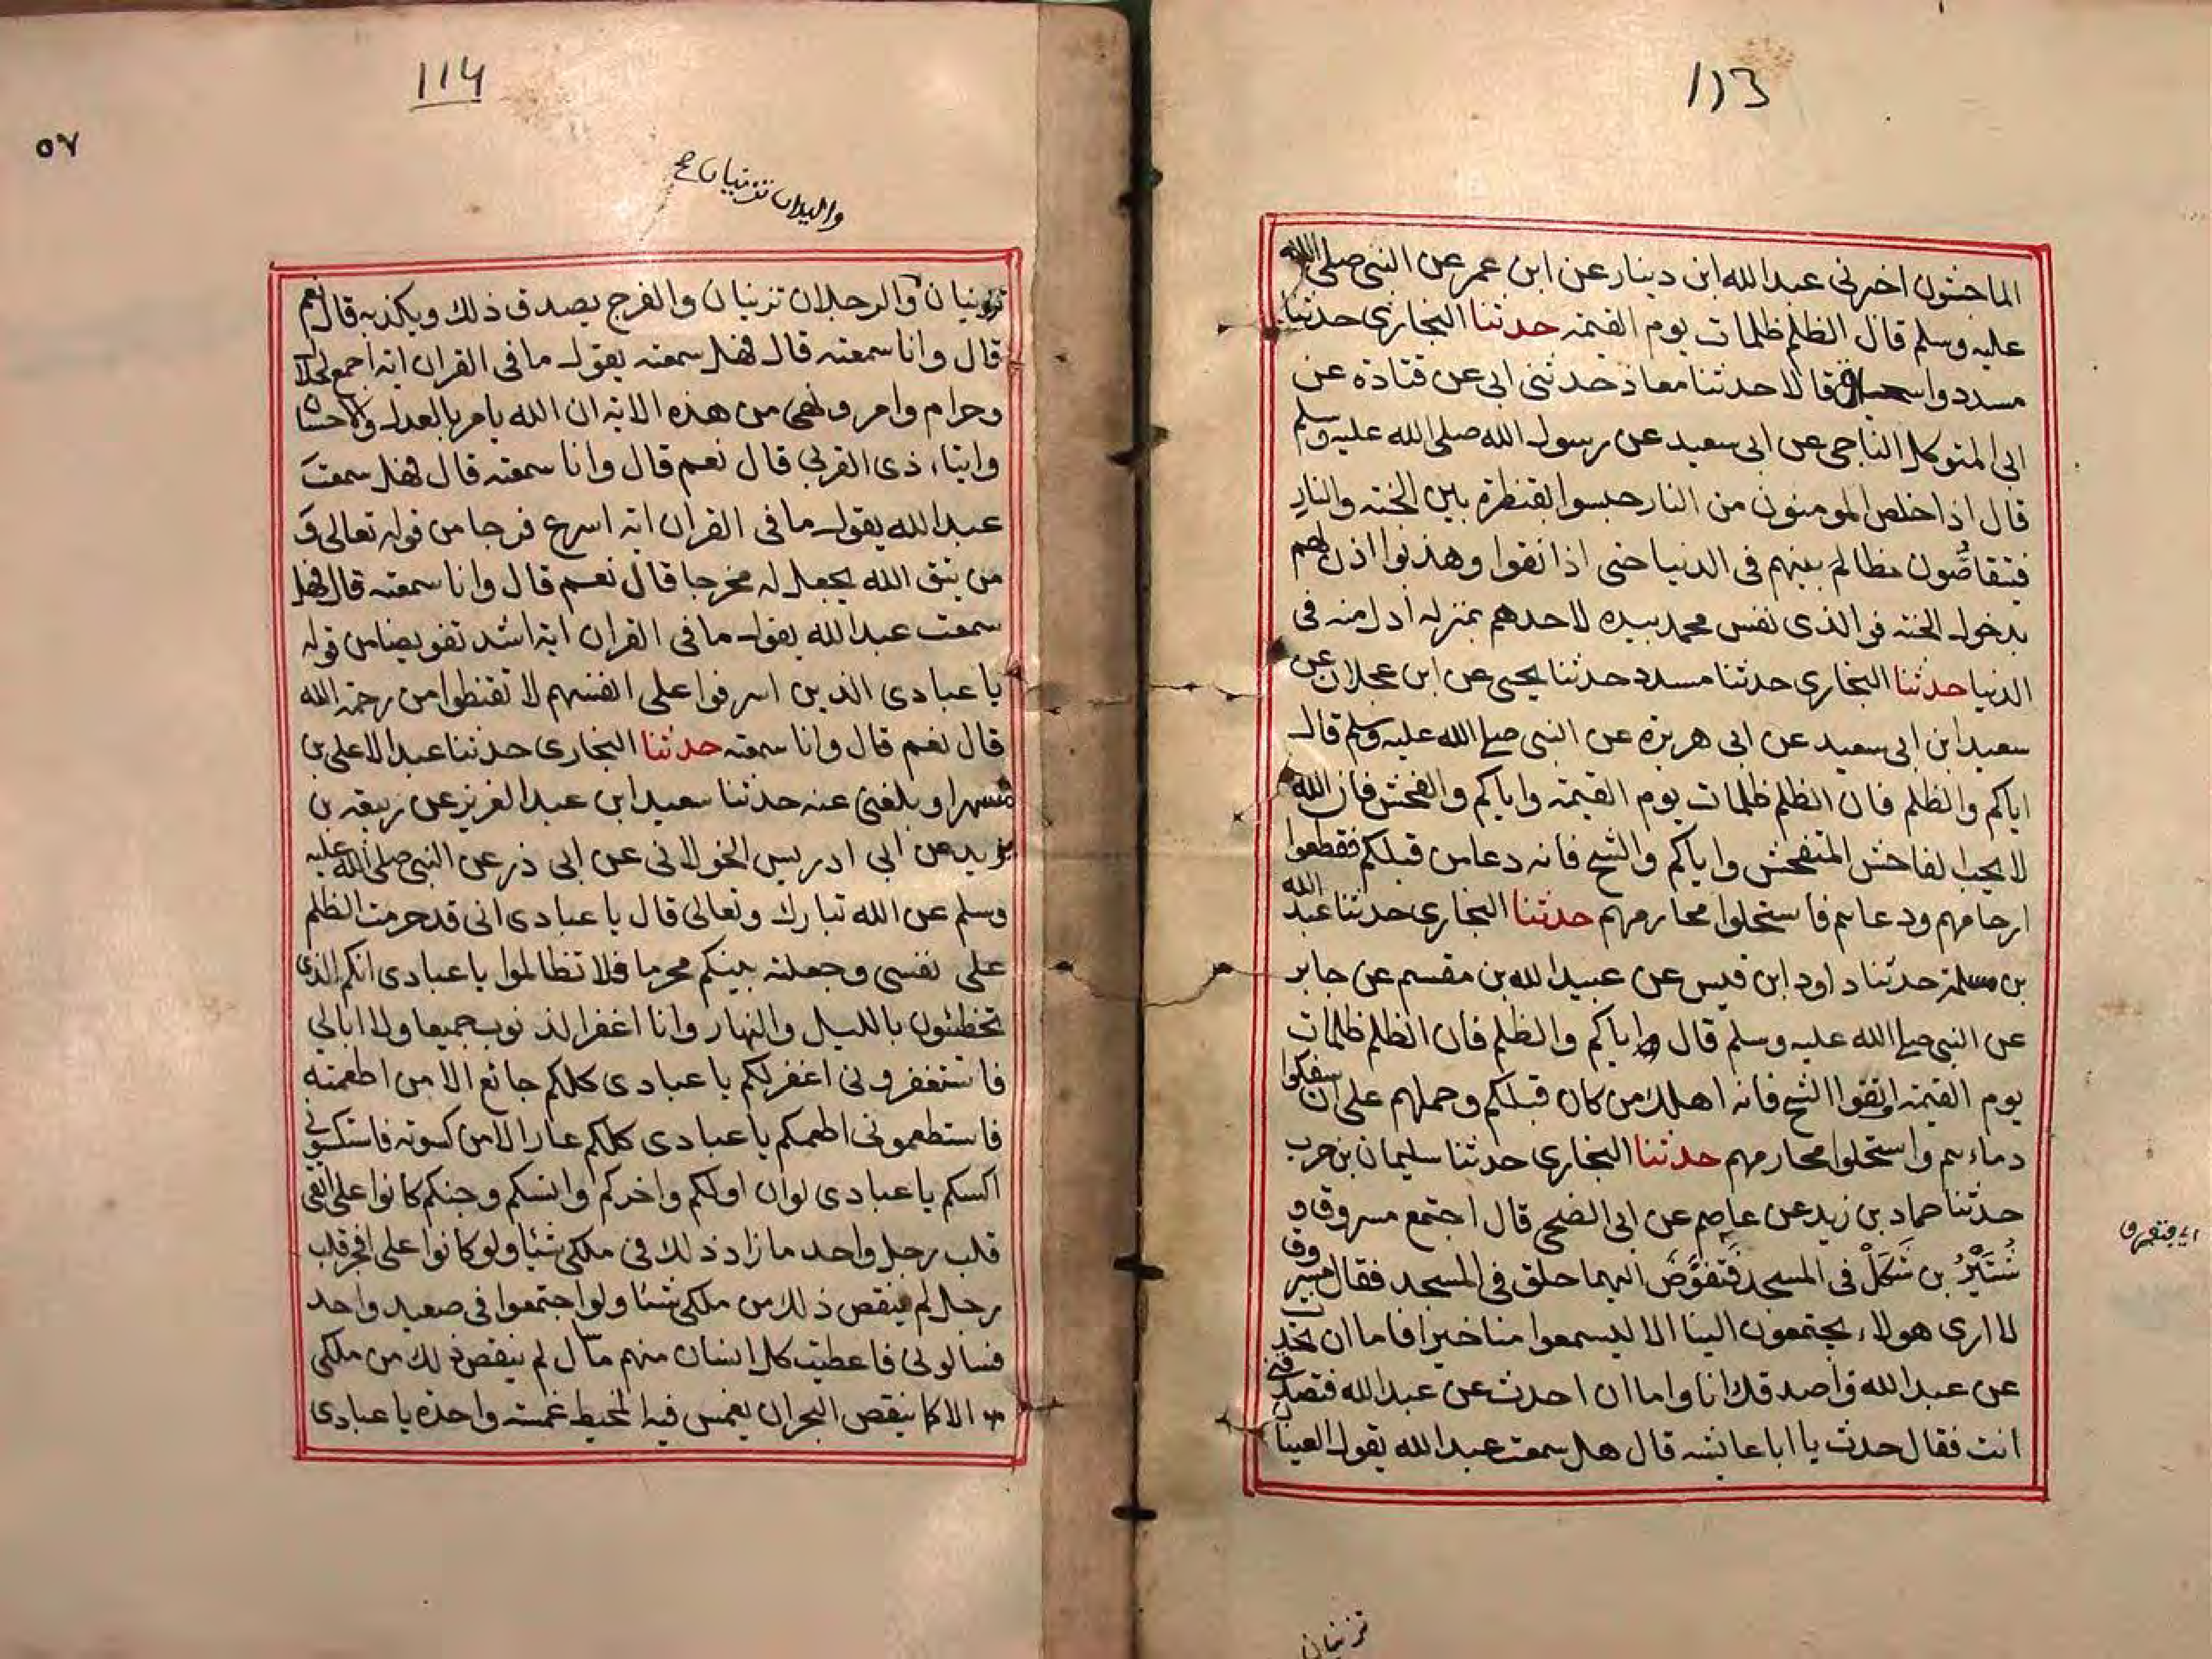 113
الماجشون اخبرنى عبدالله ابن دينار عن ابن عمر عن النبى صلى الله
عليه وسلم قال الظلم ظلمات يوم القيمة حدثنا البخارى حدثنا
مسدد واسحاق قالا حدثنا معاذ حدثنى ابى عن قتادة عن
ابى المتوكل الناجى عن ابى سعيد عن رسول الله صلى الله عليه وسلم
قال اذا خلص المومنون من النار حبسوا بقنطرة بين الجنة والنار
فيتقاصُّون مظالم بينهم فى الدنيا حتى اذا نقوا وهذبوا اذن لهم
بدخول الجنة فوالذى نفس محمد بيده لاحدهم بمنزله ادل منه فى
الدنيا حدثنا البخارى حدثنا مسدد حدثنا يحيى عن ابن عجلان عن
سعيد ابن ابى سعيد عن ابى هريرة عن النبى صلى الله عليه وسلم قال
اياكم والظلم فان الظلم ظلمات يوم القيمة واياكم والفحش فان الله
لا يحب الفاحش المتفحش واياكم والشح فانه دعا من قبلكم فقطعوا
ارحامهم ودعاهم فاستحلوا محارمهم حدثنا البخارى حدثنا عبد الله
بن مسلمة حدثنا داود ابن قيس عن عبيدالله بن مقسم عن جابر
عن النبى صلى الله عليه وسلم قال اياكم والظلم فان الظلم ظلمات
يوم القيمة واتقوا الشح فانه اهلك من كان قبلكم وحملهم على ان سفكوا
دماءهم واستحلوا محارمهم حدثنا البخارى حدثنا سليمان بن حرب
حدثنا حماد بن زيد عن عاصم عن ابى الضحى قال اجتمع مسروق و
شُتَيْرُ بن شَكَلْ فى المسجد فَتَقَوَّضَ اليهما حلق فى المسجد فقال مسروق
لا ارى هولاء يجتمعون الينا الا ليسمعوا منا خيرا فاما ان تحدث
عن عبدالله فاصدقك انا واما ان احدث عن عبدالله فتصدقنى
انت فقال حدث يا ابا عايشه قال هل سمعت عبدالله يقول العينان
تزنيان
114
٥٧
واليدان تزنيان
تزنيان والرجلان تزنيان والفرج يصدق ذلك ويكذبه قال نعم
قال وانا سمعته قال فهل سمعته يقول ما فى القران اية اجمع لحلال
وحرام وامر ونهى من هذه الاية ان الله يامر بالعدل والاحسان
وايتاء ذى القربى قال نعم قال وانا سمعته قال فهل سمعتَ
عبدالله يقول ما فى القران اية اسرع فرجا من قوله تعالى وَ
من يتق الله يجعل له مخرجا قال نعم قال وانا سمعته قال فهل
سمعت عبدالله يقول ما فى القران اية اشد تفويضا من قوله
يا عبادى الذين اسرفوا على انفسهم لا تقنطوا من رحمة الله
قال نعم قال وانا سمعته حدثنا البخارى حدثنا عبدالاعلى بن
مسهر او بلغنى عنه حدثنا سعيد ابن عبدالعزيز عن ربيعة بن
يزيد عن ابى ادريس الخولانى عن ابى ذر عن النبى صلى الله عليه
وسلم عن الله تبارك وتعالى قال يا عبادى انى قد حرمت الظلم
على نفسى وجعلته بينكم محرما فلا تظالموا يا عبادى انكم الذى
تخطئون بالليل والنهار وانا اغفر الذنوب جميعا ولا ابالى
فاستغفرونى اغفر لكم يا عبادى كلكم جائع الا من اطعمته
فاستطعمونى اطعمكم يا عبادى كلكم عار الا من كسوته فاستكسونى
اكسكم يا عبادى لو ان اولكم واخركم وانسكم وجنكم كانوا على اتقى
قلب رجل واحد ما زاد ذلك فى ملكى شئا ولو كانوا على افجر قلب
رجل لم ينقص ذلك من ملكى شئا ولو اجتمعوا فى صعيد واحد
فسالونى فاعطيت كل انسان منهم ما سال لم ينقص ذلك من ملكى
الا كما ينقص البحر ان يغمس فيه المخيط غمسة واحدة يا عبادى